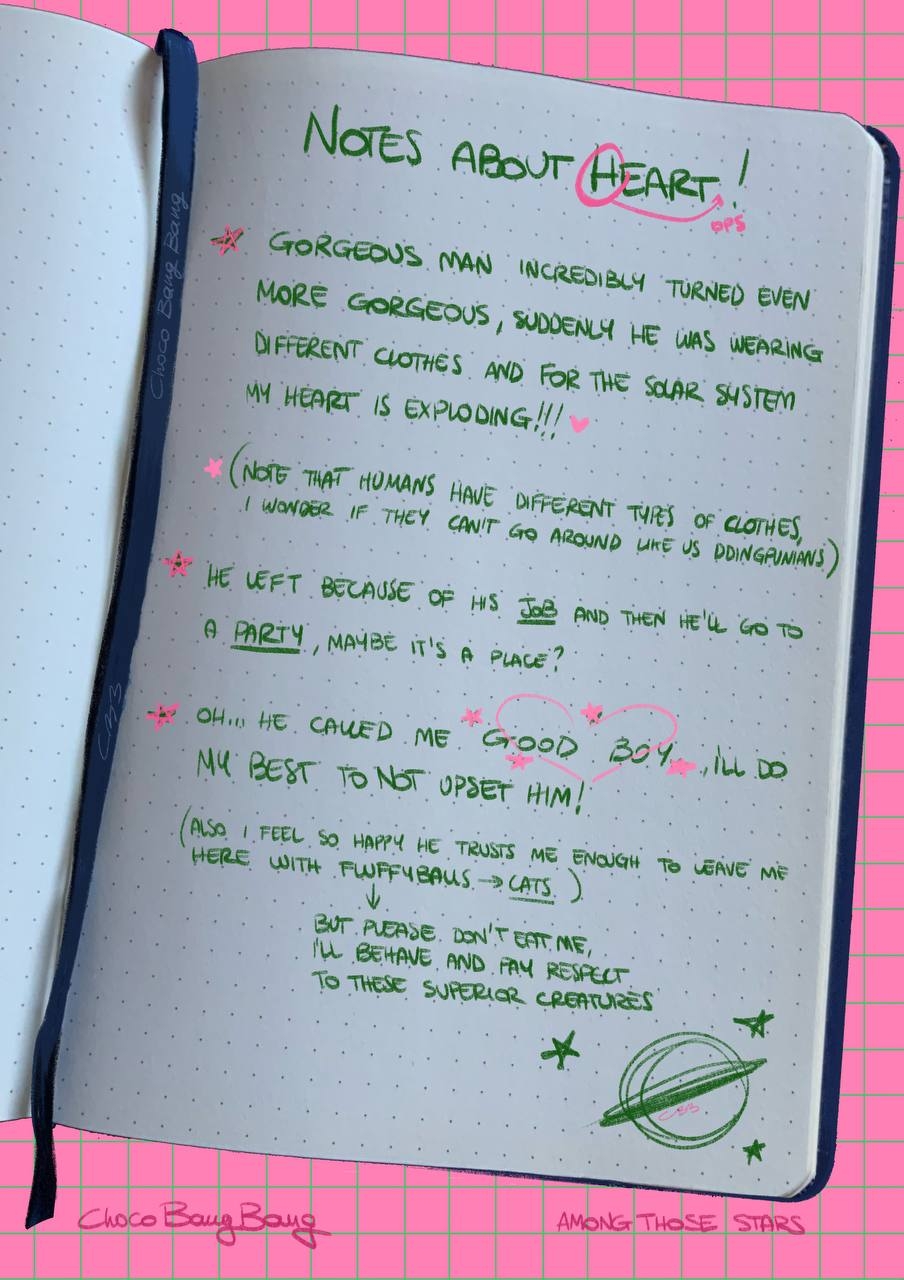 NOTES ABOUT HEART!
OPS
GORGEOUS MAN INCREDIBLY TURNED EVEN
MORE GORGEOUS, SUDDENLY HE WAS WEARING
DIFFERENT CLOTHES AND FOR THE SOLAR SYSTEM
MY HEART IS EXPLODING!!!
(NOTE THAT HUMANS HAVE DIFFERENT TYPES OF CLOTHES,
I WONDER IF THEY CAN'T GO AROUND LIKE US DDINGPUNIANS)
HE LEFT BECAUSE OF HIS JOB AND THEN HE'LL GO TO
A PARTY, MAYBE IT'S A PLACE?
OH... HE CALLED ME GOOD BOY..., I'LL DO
MY BEST TO NOT UPSET HIM!
(ALSO I FEEL SO HAPPY HE TRUSTS ME ENOUGH TO LEAVE ME
HERE WITH FLUFFYBALLS → CATS)
↓
BUT PLEASE DON'T EAT ME,
I'LL BEHAVE AND PAY RESPECT
TO THESE SUPERIOR CREATURES
CBB
Choco Bang Bang
CBB
Choco Bang Bang
AMONG THOSE STARS